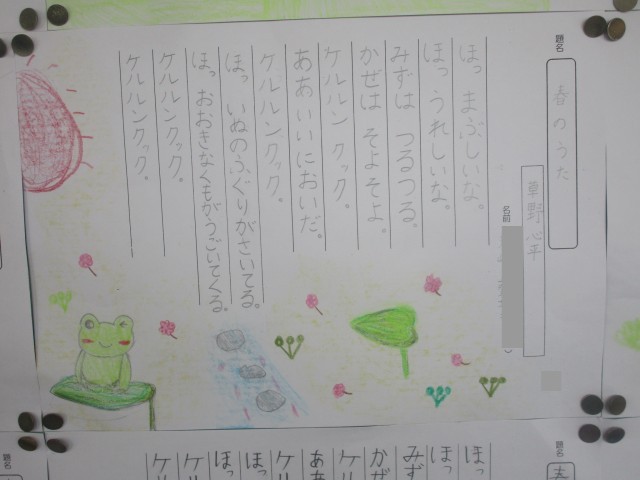 題名
春のうた
草野心平
名前
ほっ まぶしいな。
ほっ うれしいな。
みずは つるつる。
かぜは そよそよ。
ケルルン クック。
ああいいにおいだ。
ケルルンクック。
ほっ いぬのふぐりがさいてる。
ほっ おおきなくもがうごいてくる。
ケルルンクック。
ケルルンクック。
題名
ほっ
ほっ
みず
かぜ
ケル
ああ
ケル
ほっ
ほっ
ケル
ケル
題名